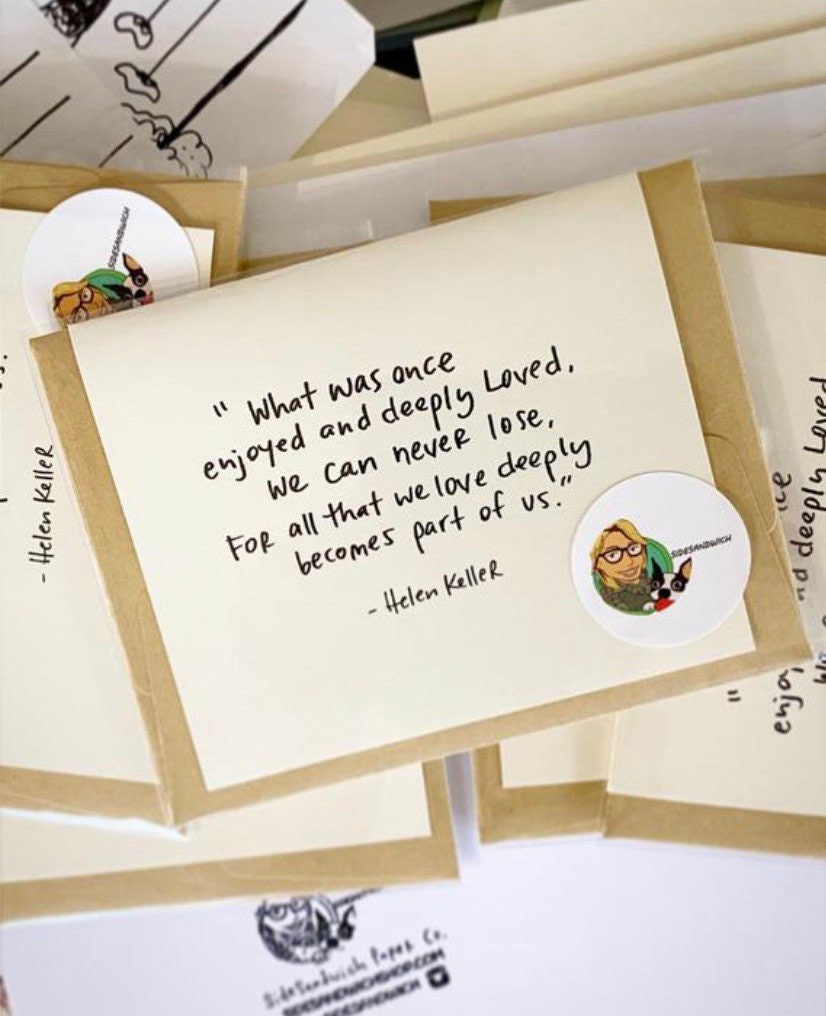 SIDESANDWICH
" What was once
enjoyed and deeply Loved,
we can never lose,
For all that we love deeply
becomes part of us."
- Helen Keller
SIDESANDWICH
- Helen Keller
deeply Loved
"
enjoy
SideSandwich Paper Co.
SIDESANDWICHSHOP.COM
SIDESANDWICH